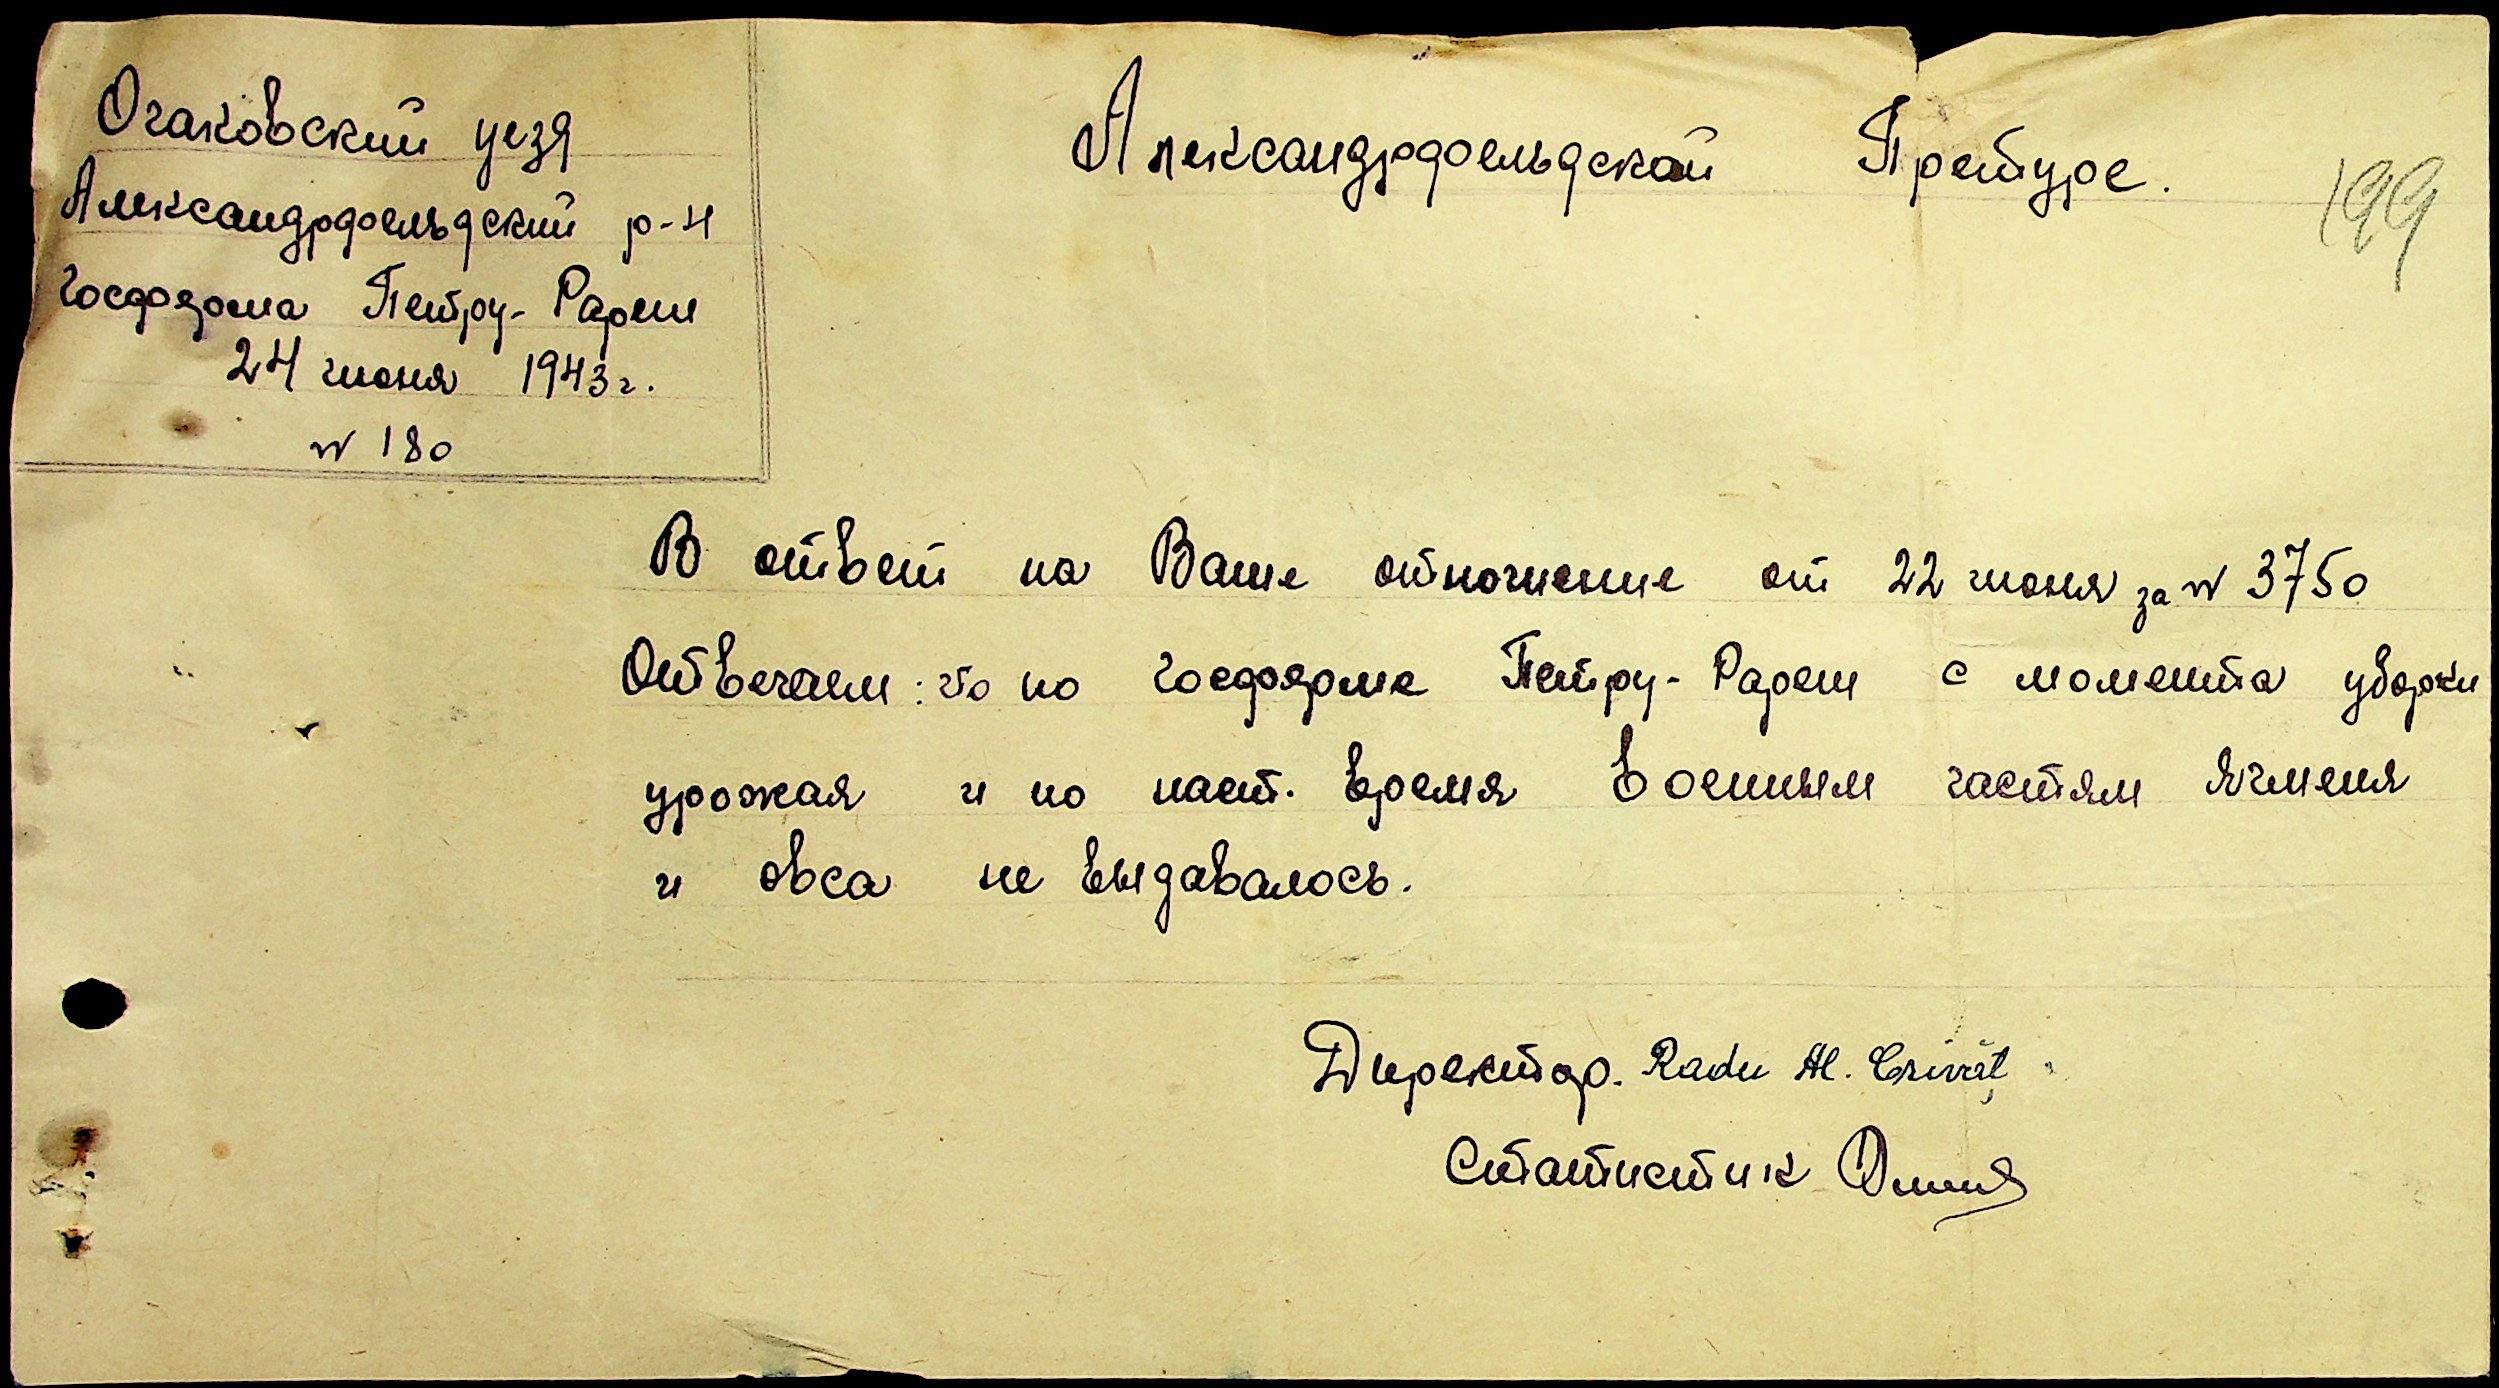 Очаковский уезд
Александрфельдский р-н
Госферма Петру-Рареш
24 июня 1943 г.
N 180
Александрфельдской Претуре.
199
В ответ на Ваше отношение от 22 июня за N 3750
Отвечаем: что по госферме Петру-Рареш с момента уборки
урожая и по наст. время военным частям ячменя
и овса не выдавалось.
Директор. Radu Al. Crivăț
Статистик